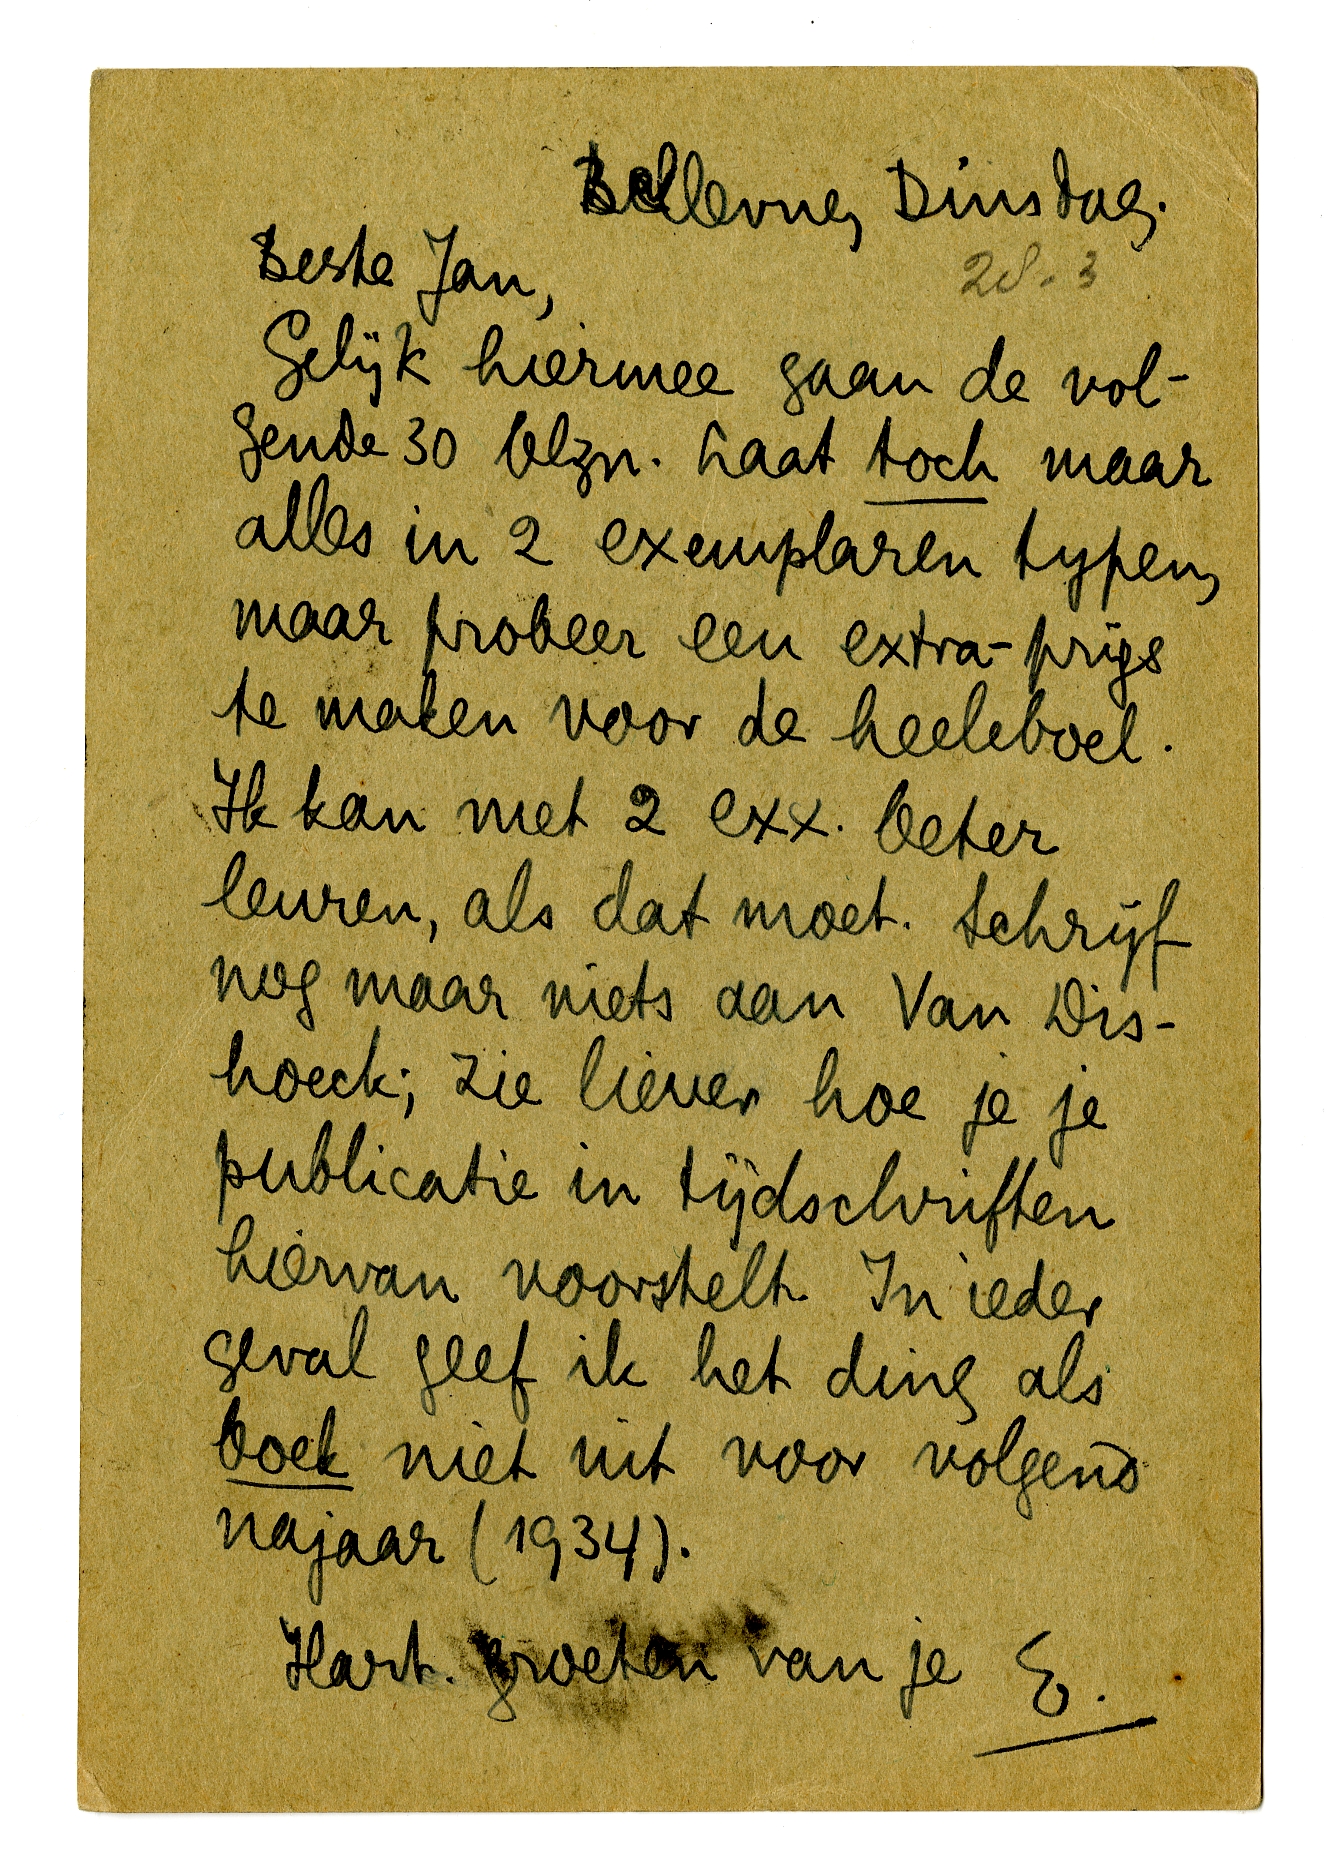 Bellevue, Dinsdag.
28.3
Beste Jan,
Gelijk hiermee gaan de vol-
gende 30 blzn. Laat toch maar
alles in 2 exemplaren typen,
maar probeer een extra-prijs
te maken voor de heeleboel.
Ik kan met 2 exx. beter
leuren, als dat moet. Schrijf
nog maar niets aan Van Dis-
hoeck; zie liever hoe je je
publicatie in tijdschriften
hiervan voorstelt. In ieder
geval geef ik het ding als
boek niet uit voor volgend
najaar (1934).
Hart. groeten van je E.